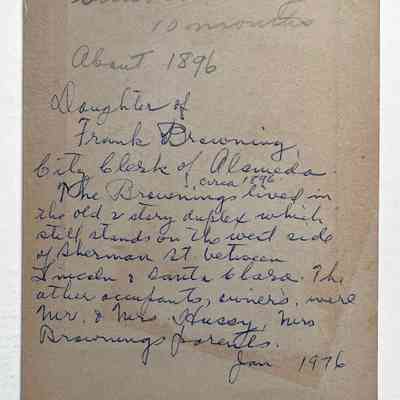 10 months
About 1896
Daughter of
Frank Browning,
City Clerk of Alameda.
circa 1896
The Brownings lived in
the old 2 story duplex which
still stands on the west side
of Sherman St. between
Lincoln & Santa Clara. The
other occupants, owners, were
Mr. & Mrs Hussy, Mrs
Brownings parents.
Jan 1976